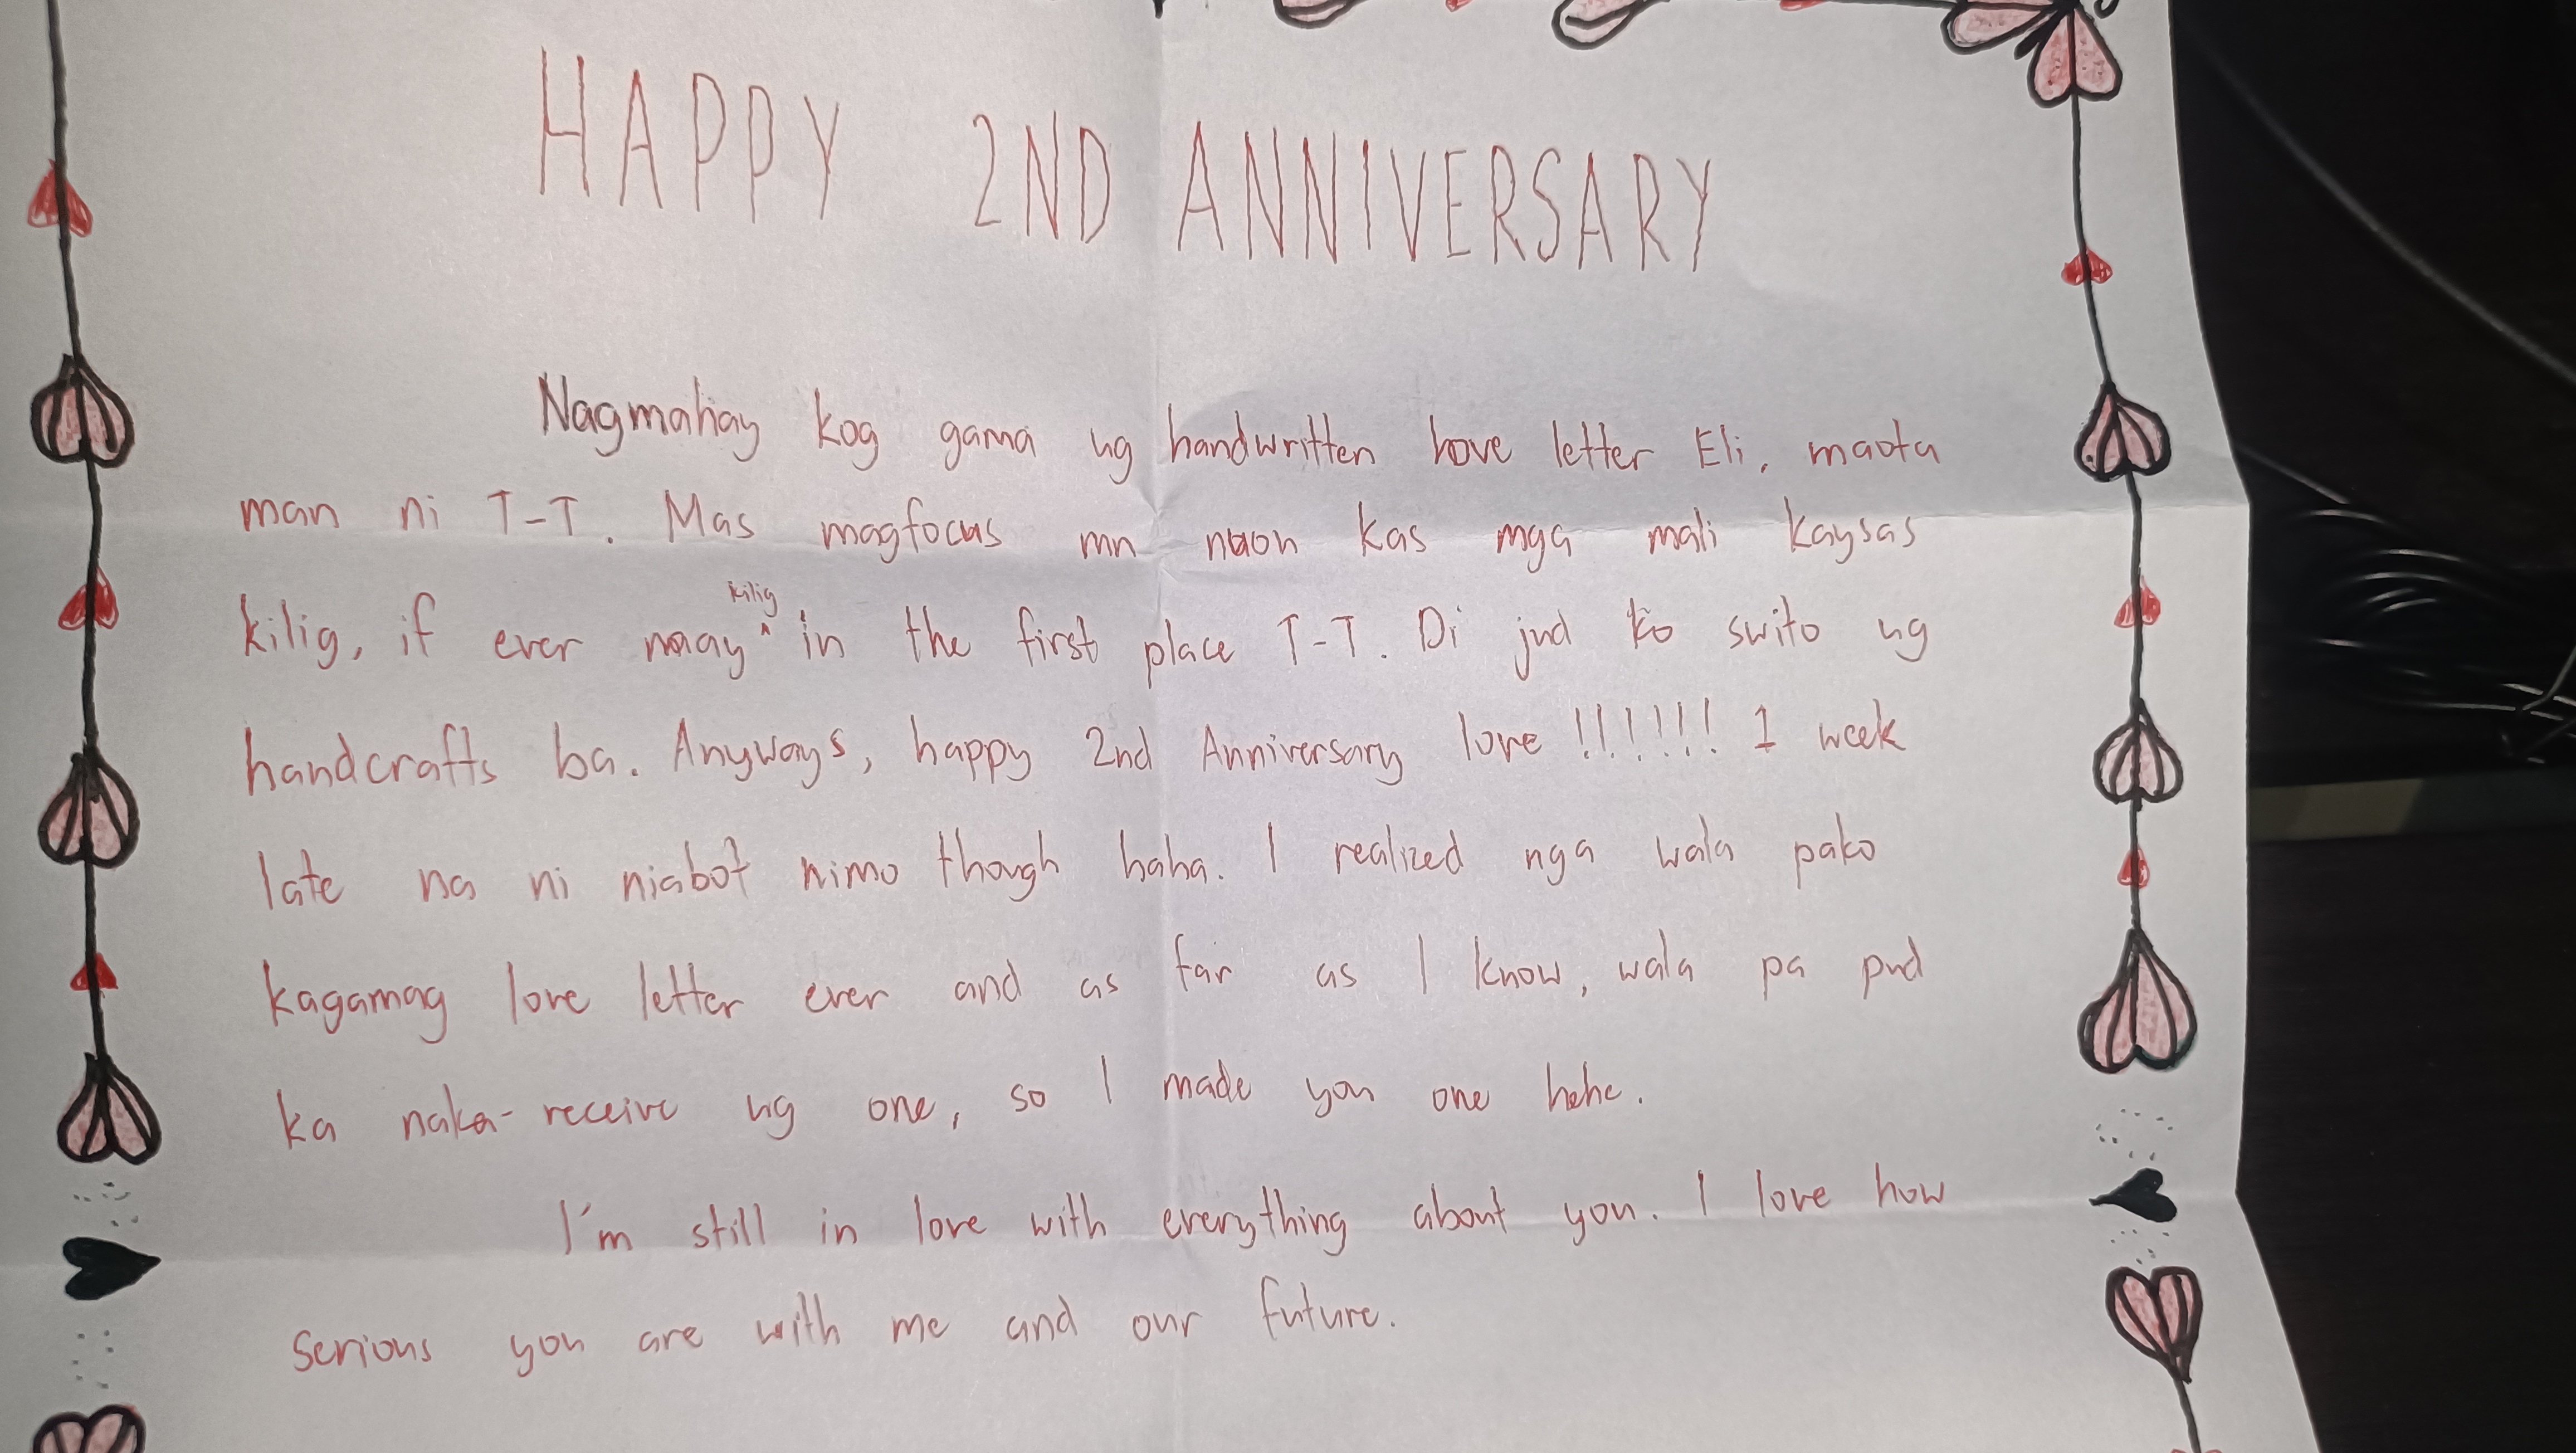 HAPPY 2ND ANNIVERSARY
Nagmahay kog gama ug handwritten love letter Eli, maota
man ni T-T. Mas magfocus mn nuon kas mga mali kaysas
kilig, if ever naay kilig in the first place T-T. Di jud ko swito ug
handcrafts ba. Anyways, happy 2nd Anniversary love !!!!!!! 1 week
late na ni niabot nimo though haha. I realized nga wala pako
kagamag love letter ever and as far as I know, wala pa pud
ka naka-receive ug one, so I made you one hehe.
I'm still in love with everything about you. I love how
serious you are with me and our future.